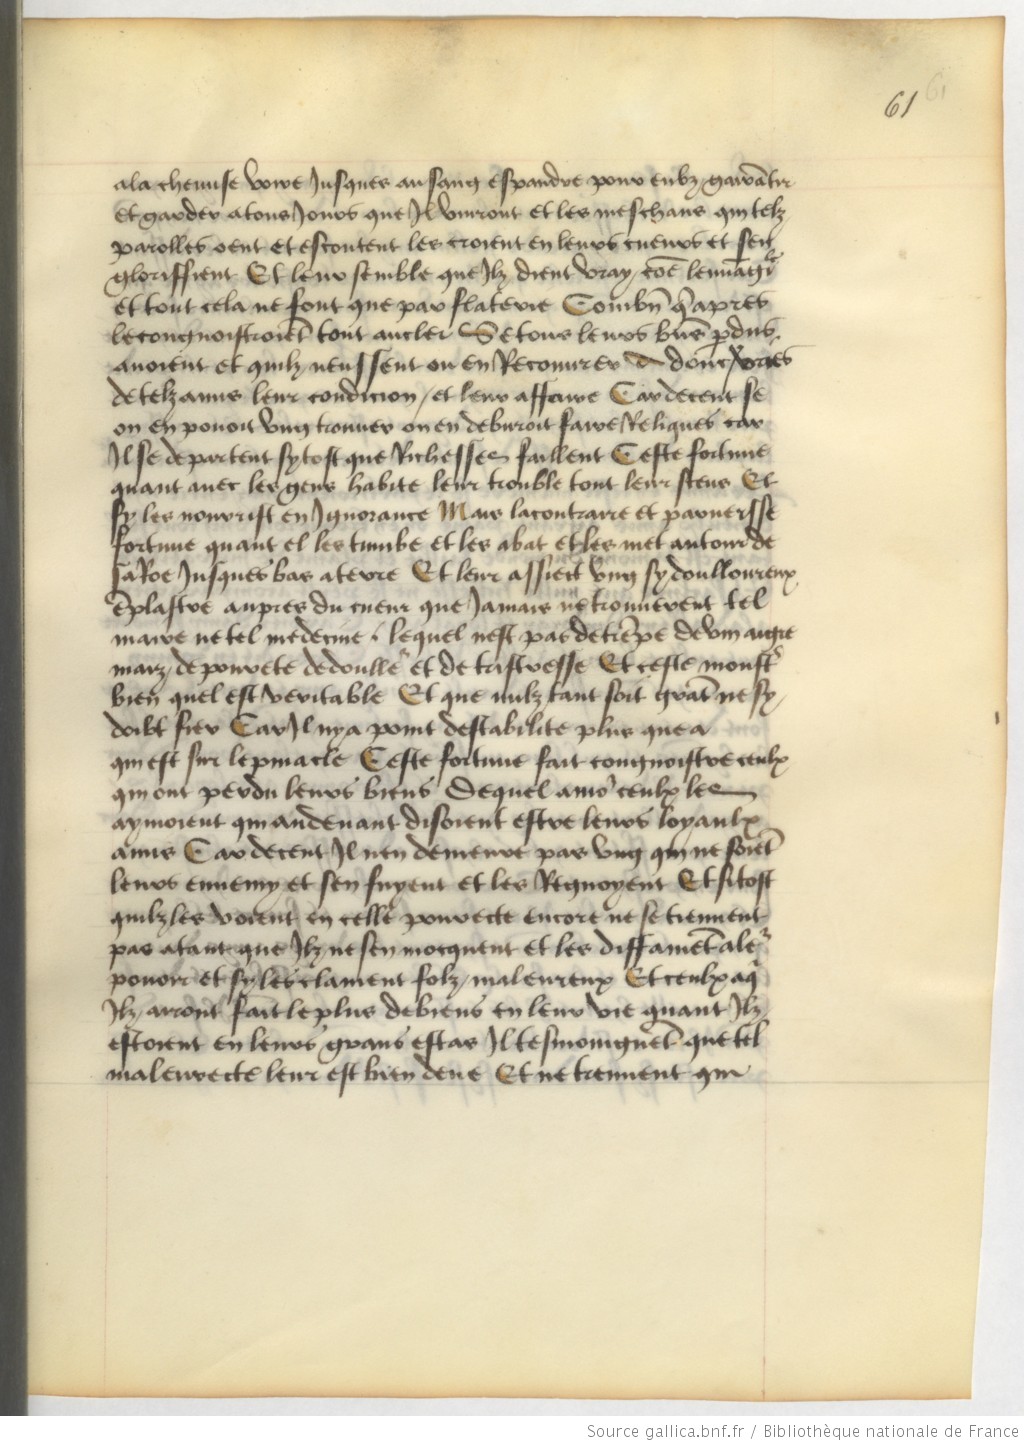 61 61
ala chemise voire Jusques au sang espandre pour eulx garātir
et garder a tous Jours que Jlz viuront et les meschans qui telz
parolles oent et escoutent les croient en leurs cueurs et sen
gloriffient Et leur semble que Jlz dient vray cōe leuuāgil
et tout cela ne font que par flaterie Combn̄ q̄ apres
le congnoistroiēt tout au cler Se tous leurs biēs p̄dus
auoient et quilz neussent ou en Recouurer donc
de telz amis leur condicion / et leur affaire Car de cent se
on en pouoit vng trouuer on en deburoit faire Reliques car
Jl se departent sy tost que Richesses faillent Ceste fortune
quant auec les gens habite leur trouble tout leur scens Et
sy les nourrist en Jgnorance Mais la contraire et paruersse
fortune quant el les tumbe et les abat et les met autour de
sa Roe Jusques bas a terre Et leur assiect vng sy doulloureux
ēplastre aupres du cueur que Jamais ne trouuerent tel
maire ne tel medecine / lequel nest pas de trēpe de vin aigre
maiz de pourete de doulle' et de tristresse Et ceste monst'
bien quel est veritable Et que nulz tant soit grāt ne sy
doibt fier Car Jl ny a point destabilite plus que a
qui est sur le pinacle Ceste fortune fait congnoistre ceulx
qui ont perdu leurs biens De quel amo' ceulx les
aymoient qui au deuant disoient estre leurs loyaulx
amis Car de cent Jl nen demeure pas vng qui ne soiēt
leurs ennemy et sen fuyent et les Regnoyent Et si tost
quilz les voient en celle pourecte encore ne se tiennent
pas atant que Jlz ne sen mocquent et les diffament a le'
pouoir et sy les clament folz / maleureux Et ceulx a q̄
Jlz arront fait le plus de biens en leur vie quant Jlz
estoient en leurs grans estas Jl tesmoingnēt que tel
maleurecte leur est bien deue Et ne treuuent qui
Source gallica.bnf.fr / Bibliothèque nationale de France